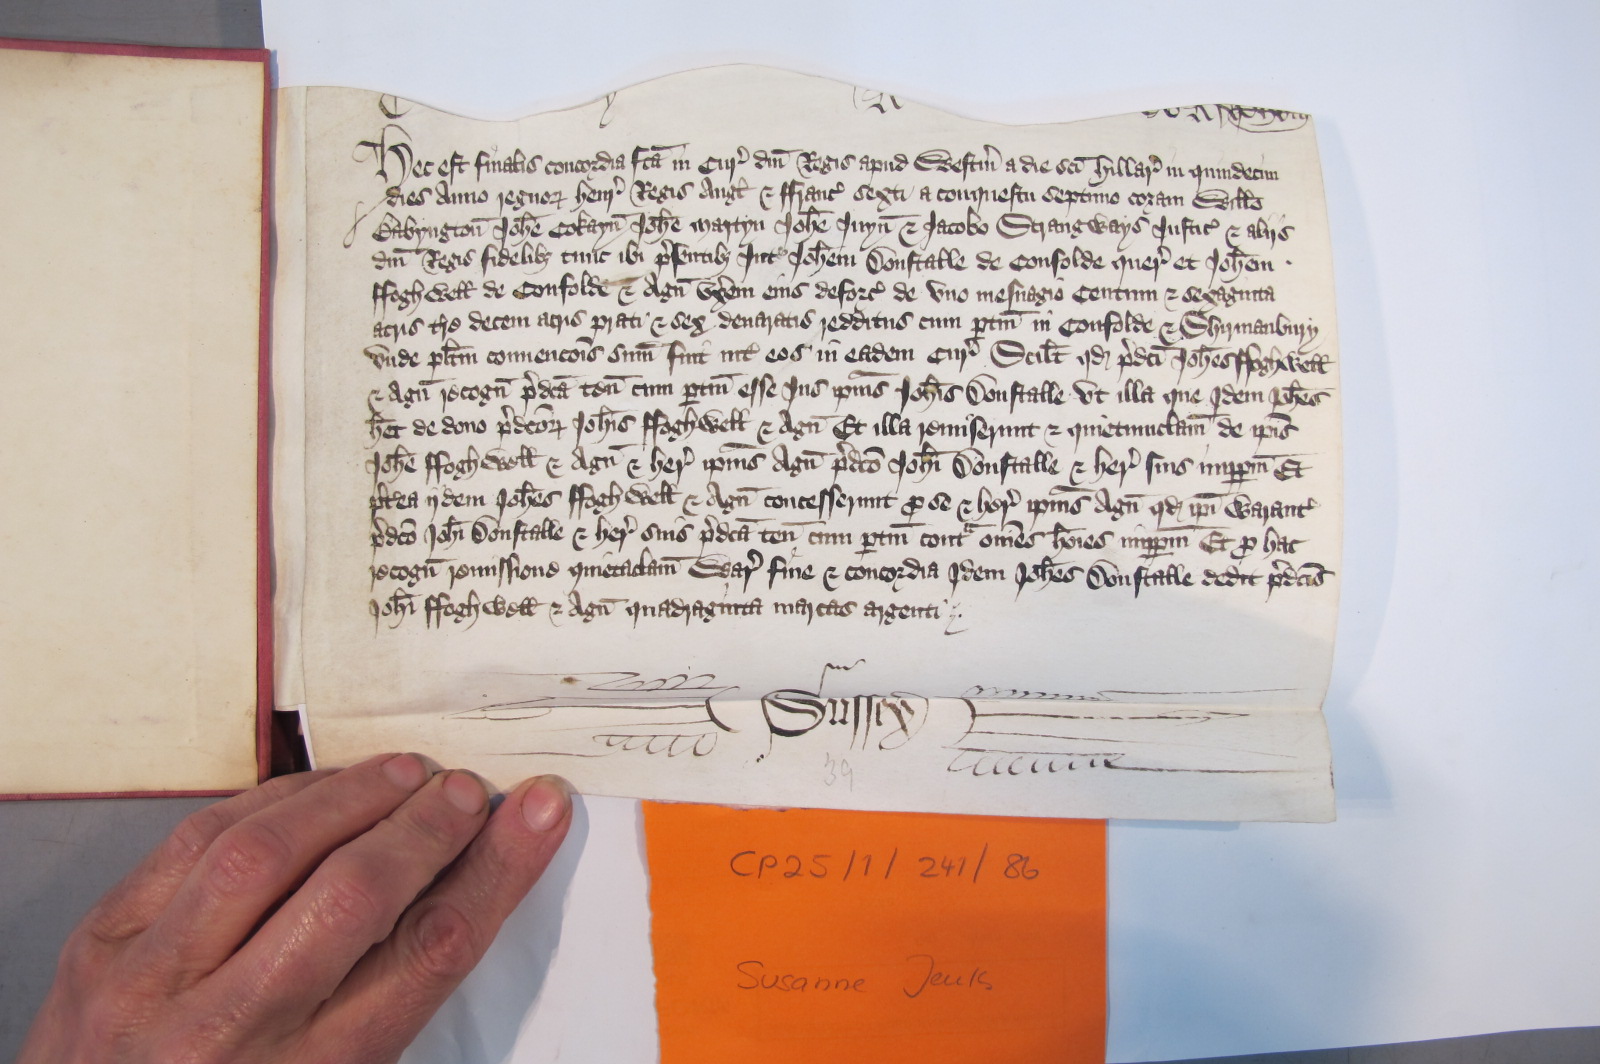 Hec est finalis concordia fcā in Cur' dn̄i Regis apud Westm̄ a die scī Hillar' in quindecim
dies Anno regnoꝝ Henr' Regis Angł & ffranc' sexti a conquestu septimo coram Willō
Babyngton̄ Joh̄e Cokayn̄ Joh̄e Martyn Joh̄e Juyn̄ & Jacobo Strangways Justic' & alijs
dn̄i Regis fidelibȝ tunc ibi p̄sentibȝ Int' Joh̄em Donstalle de Consolde quer' et Joh̄em
ffoghwell de Consolde & Agn̄ vx̄em eius deforc' de vno mesuagio Centum & sexaginta
acris tr̄e decem acris prati & sex denaratis redditus cum ptin̄ in Consolde & Shirmanbury
vnde pl̄itm conuencōis sum̄ fuit int' eos in eadem Cur' Scilt qd p̄dcī Joh̄es ffoghwell
& Agn̄ recogn̄ p̄dcā ten̄ cum ptin̄ esse Jus ip̄ius Joh̄is Donstalle vt illa que Idem Joh̄es
h̄et de dono p̄dcōꝝ Joh̄is ffoghwell & Agn̄ Et illa remiserunt & quietumclam̄ de ip̄is
Joh̄e ffoghwell & Agn̄ & her' ip̄ius Agn̄ p̄dcō Joh̄i Donstalle & her' suis imppm̄ Et
p̄tea ijdem Joh̄es ffoghwell & Agn̄ concesserunt ꝓ se & her' ip̄ius Agn̄ qd ip̄i Warant'
p̄dcō Joh̄i Donstalle & her' suis p̄dcā ten̄ cum ptin̄ contᵃ om̄es hōies imppm̄ Et ꝓ hac
recogn̄ remissione quietaclam̄ War' fine & concordia Idem Joh̄es Donstalle dedit p̄dcīs
Joh̄i ffoghwell & Agn̄ quadraginta marcas argenti
Sussex
39
CP25/1/241/86
Susanne Jenks